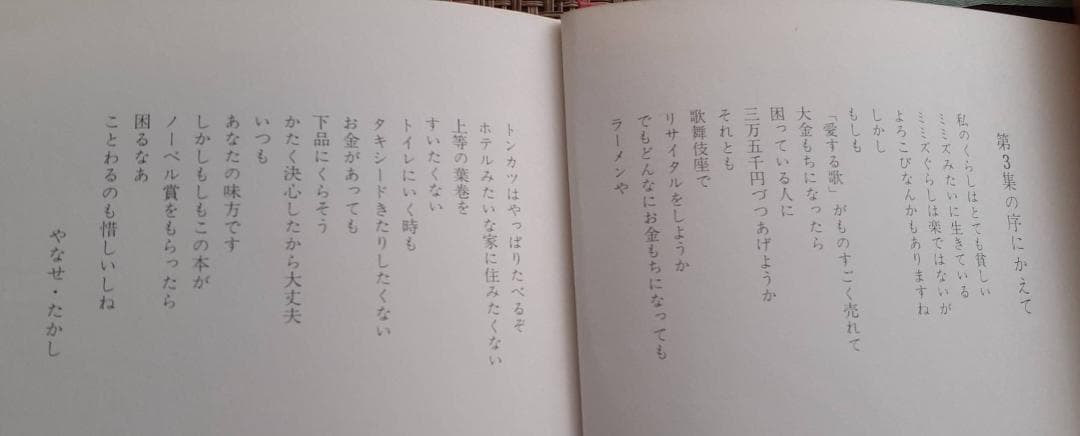 第3集の序にかえて
私のくらしはとても貧しい
ミミズみたいに生きている
ミミズぐらしは楽ではないが
よろこびなんかもありますね
しかし
もしも
「愛する歌」がものすごく売れて
大金もちになったら
困っている人に
三万五千円づつあげようか
それとも
歌舞伎座で
リサイタルをしようか
でもどんなにお金もちになっても
ラーメンや
トンカツはやっぱりたべるぞ
ホテルみたいな家に住みたくない
上等の葉巻を
すいたくない
トイレにいく時も
タキシードきたりしたくない
お金があっても
下品にくらそう
かたく決心したから大丈夫
いつも
あなたの味方です
しかしもしもこの本が
ノーベル賞をもらったら
困るなあ
ことわるのも惜しいしね
やなせ・たかし